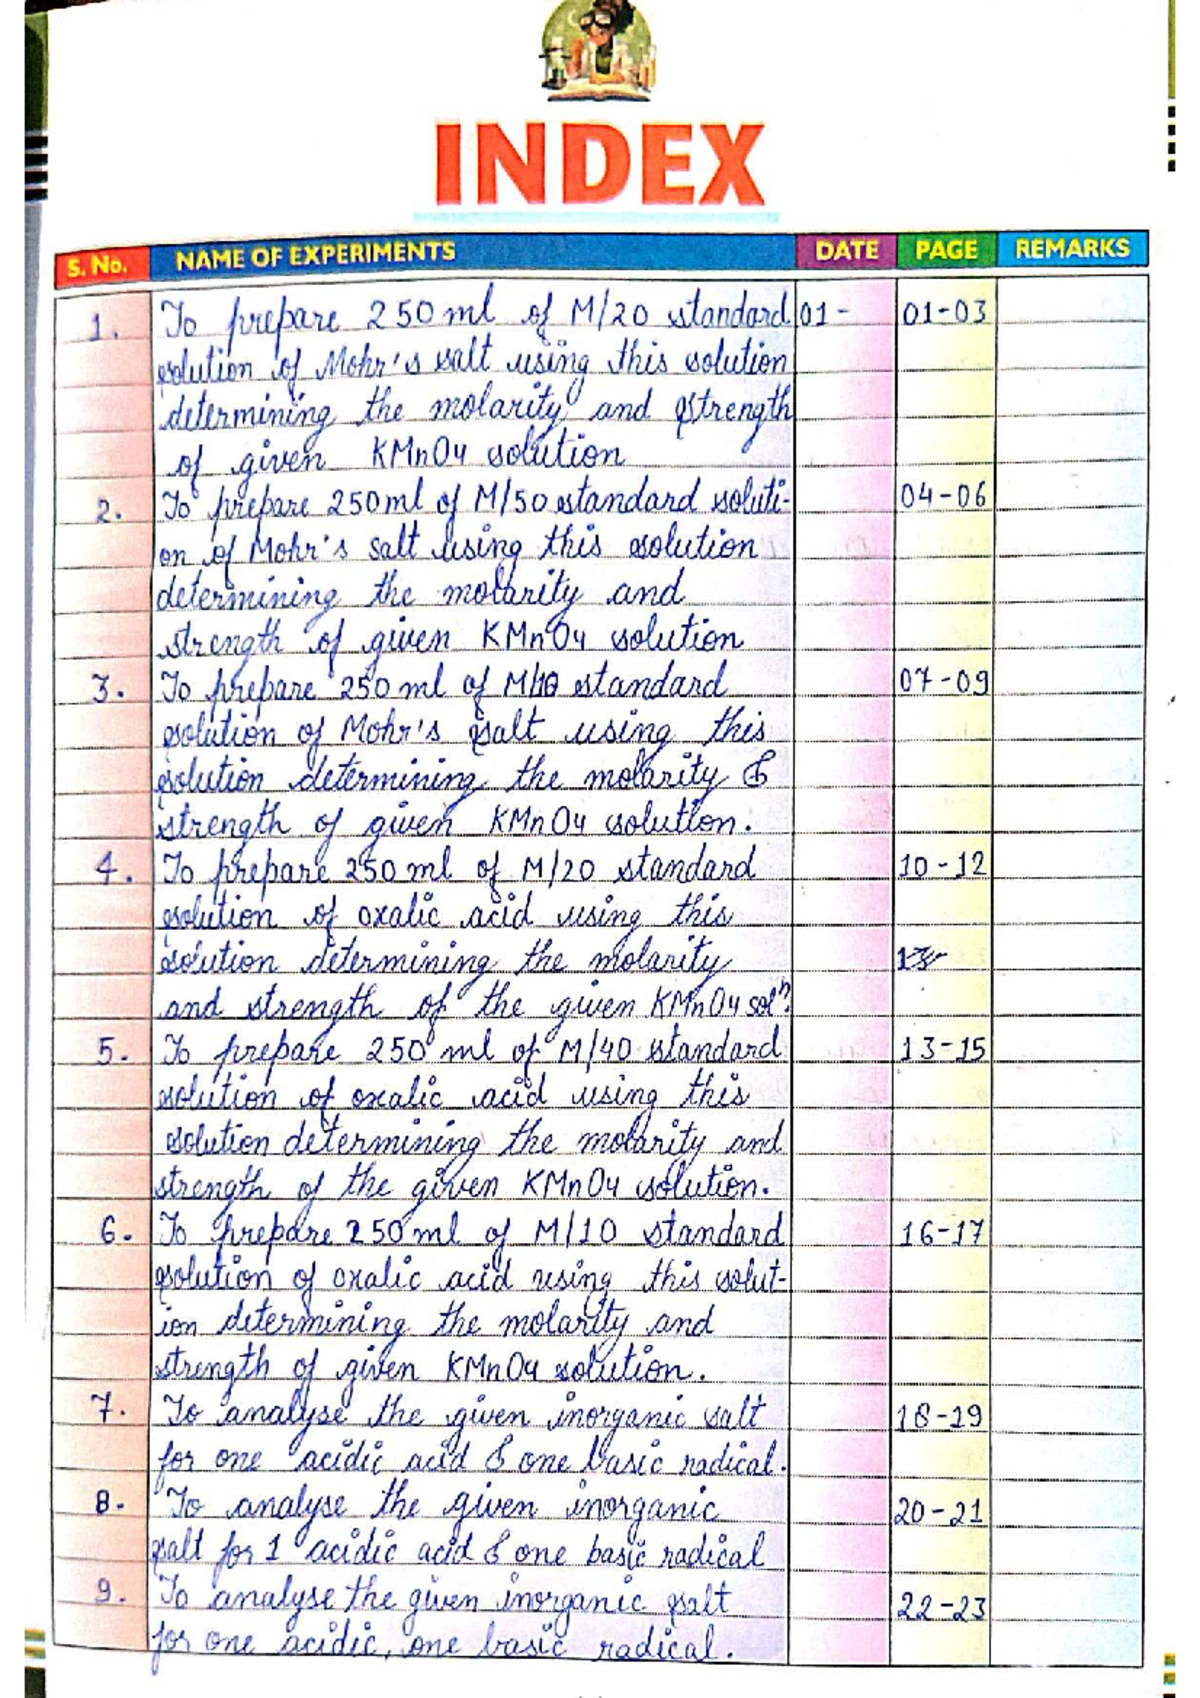 INDEX
S. No. NAME OF EXPERIMENTS DATE PAGE REMARKS
1. To prepare 250 ml of M/20 standard 01- 01-03
solution of Mohr's salt using this solution
determining the molarity and strength
of given KMnO4 solution
2. To prepare 250ml of M/50 standard soluti- 04-06
on of Mohr's salt using this solution
determining the molarity and
strength of given KMnO4 solution
3. To prepare 250 ml of M/10 standard 07-09
solution of Mohr's salt using this
solution determining the molarity &
strength of given KMnO4 solution.
4. To prepare 250 ml of M/20 standard 10-12
solution of oxalic acid using this
solution determining the molarity 13-
and strength of the given KMnO4 solⁿ.
5. To prepare 250 ml of M/40 standard 13-15
solution of oxalic acid using this
solution determining the molarity and
strength of the given KMnO4 solution.
6. To prepare 250 ml of M/10 standard 16-17
solution of oxalic acid using this solut-
ion determining the molarity and
strength of given KMnO4 solution.
7. To analyse the given inorganic salt 18-19
for one acidic acid & one basic radical.
8. To analyse the given inorganic 20-21
salt for 1 acidic acid & one basic radical
9. To analyse the given inorganic salt 22-23
for one acidic, one basic radical.